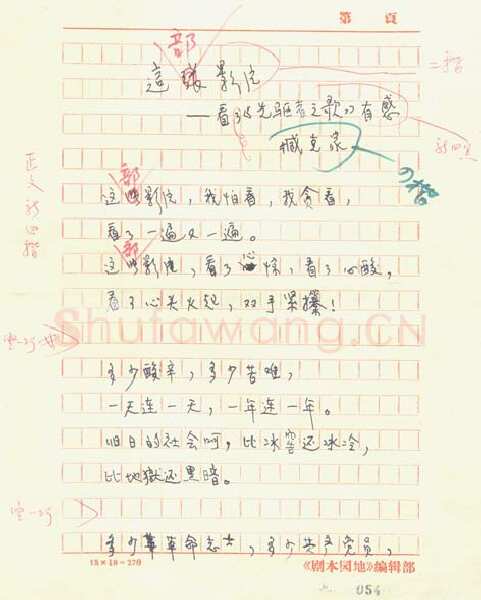 第 頁
部
這張影片
二楷
——看了《先驱者之歌》有感
新四宋
臧克家
四楷
正文新四楷
部
这些影片，我怕看，我贪看，
看了一遍又一遍。
部
这些影片，看了心惊，看了心酸，
看了心头火起，双手紧攥！
空一行
多少酸辛，多少苦难，
一天连一天，一年连一年。
旧日的社会呵，比冰窖还冰冷，
比地狱还黑暗。
空一行
多少革命志士，多少共产党员，
15×18=270
《剧本园地》编辑部
054
Shufawang.CN